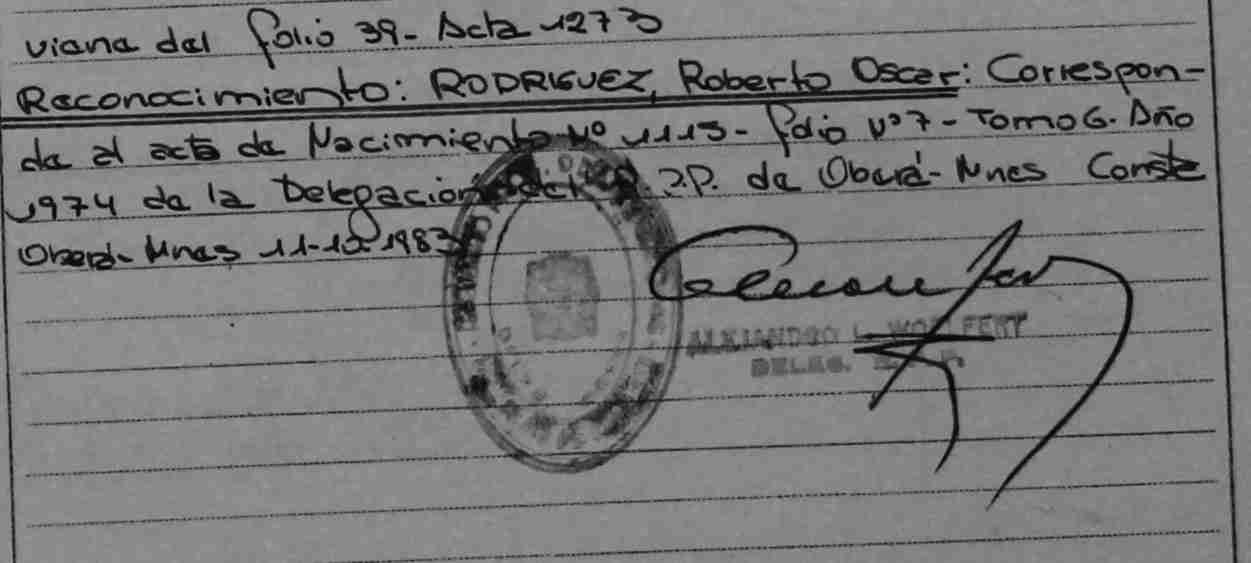 viene del folio 39- Acta 1273
Reconocimiento: RODRIGUEZ, Roberto Oscar: Correspon-
de al acta de Nacimiento Nº 1113- folio Nº 7- Tomo 6. Año
1974 de la Delegación del R.P. de Oberá- Mnes Conste
Oberá- Mnes 11-10-1983
ALEJANDRO L. WOLFERT
DELEG.